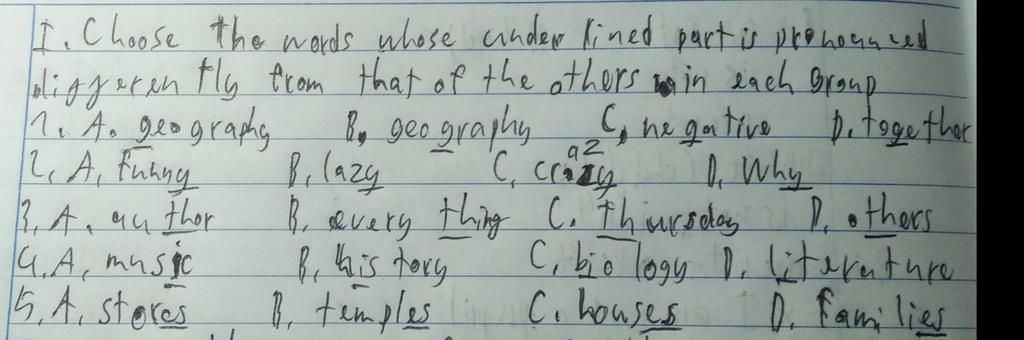 I. Choose the words whose under lined part is pronounced
differen tly from that of the others in each group
1. A. geography B. geography C. negative D. together
2. A. funny B. lazy C. crazy D. Why
3. A. author B. every thing C. thursday D. others
4. A. music B. his tory C. bio logy D. literature
5. A. stores B. temples C. houses D. families